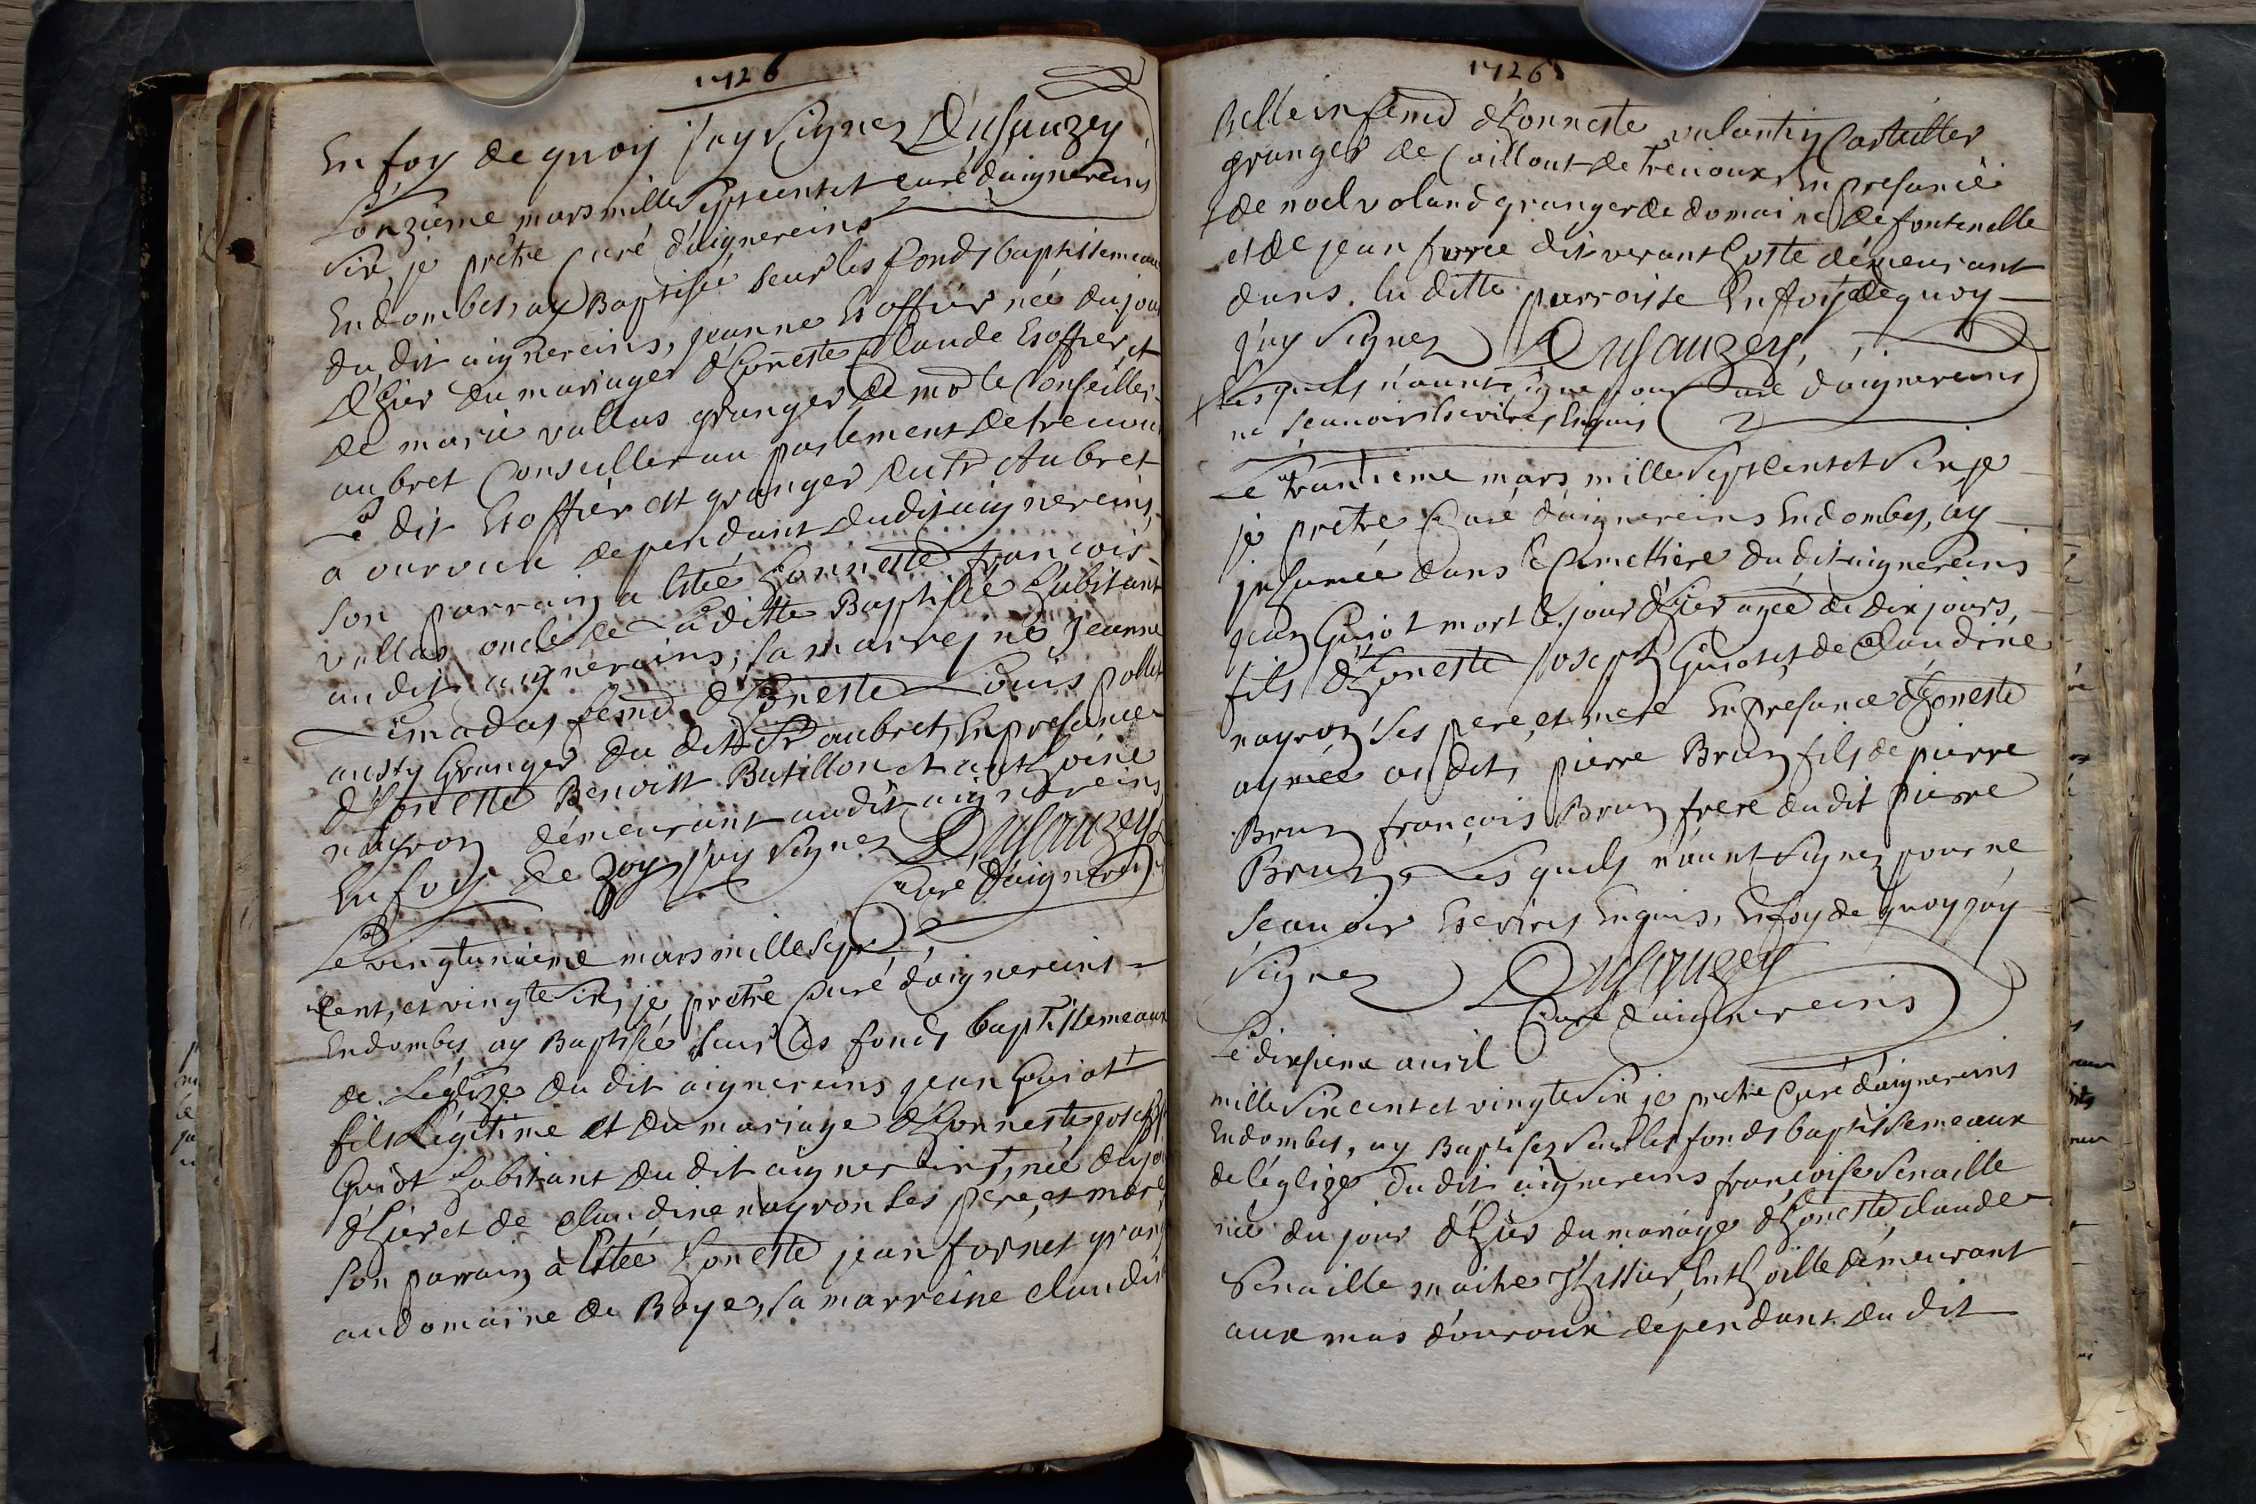 1726
En foy de quoy j'ay Signez Dusauzey
curé d'aignereins
L'onzieme mars mille Septcent et
Six, je prêtre Curé d'aignereins
En dombes, ay Baptisée Seur les fonds baptissemeaux
du dit aignereins, jeanne Esoffier née du jour
d'hier du mariager d'honeste Claude Esoffier, et
de marie vallas granger de mr le Conseiller
aubret Conseiller au parlement de trevoux
Le dit Esoffier est granger du dt Aubret
a ouroux dependant du dit aignereins,
Son parrain a estée honneste francois
vallas oncle de La ditte Baptisée habitant
au dit aignereins, sa marrejne Jeanne
femme d'honeste Louis pollet
aussy Granger du dit Sr aubret, En presance
d'honeste Benoist Batillon et anthoine
nayron démeurant audit aignereins
En foy de quoy j'ay Signez Dusauzey
Curé d'aignereins
Le vingtunieme mars mille Sept
Cent, et vingte Six, je prêtre Curé d'aignereins
En dombes ay Baptisée Seur Les fonds baptissemeaux
de L'eglize du dit aignereins jean Guiot
fils Légitime et du mariage d'honneste joseph
Guiot habitant du dit aignereins, née du jour
d'hier et de claudine nayron Ses pere, et mere,
Son parrain à Estée honeste jean fornet grang
au domaine de Baye, sa marreine claudine
1726
Belle in femme d'honneste valantin Cartillier
granger de Caillout de Trevoux, En presance
de noel voland granger de domaine de fontenelle
et de jean furre dit verant hoste démeurant
dans la ditte parroisse En foy de quoy
j'ay Signez Dusauzey,
Curé d'aignereins
Lesquels n'aunt Signe pour
ne Scauoir Escrires Enquis
Le trantieme mars mille Septcent et Six je
je prêtre Curé d'aignereins En dombes, ay
jnhumée dans Le Cimettiere du dit aignereins
jean Guiot mort le jour d'hier agée de dix jours,
fils d'honeste joseph Guiot et de Claudine
nayron Ses pere, et mere En presance d'honeste
aymée au dit, pierre Brun fils de pierre
Brun françois Brun frere du dit pierre
Brun, Lesquels n'aunt Signez pour ne
Scauoir Escrires Enquis, En foy de quoy j'ay
Signez Dusauzey
Curé d'aignereins
Le dixsieme auril
mille Sixcent et vingte Six je prêtre Curé d'aignereins
En dombes, ay Baptisez Seur les fonds baptissemeaux
de l'eglize du dit aignereins françoise Senaille
née du jour d'hier du mariage d'honeste claude
Senaille maitre thissier, En thoille démeurant
aux mas d'ouroux dépendant du dit